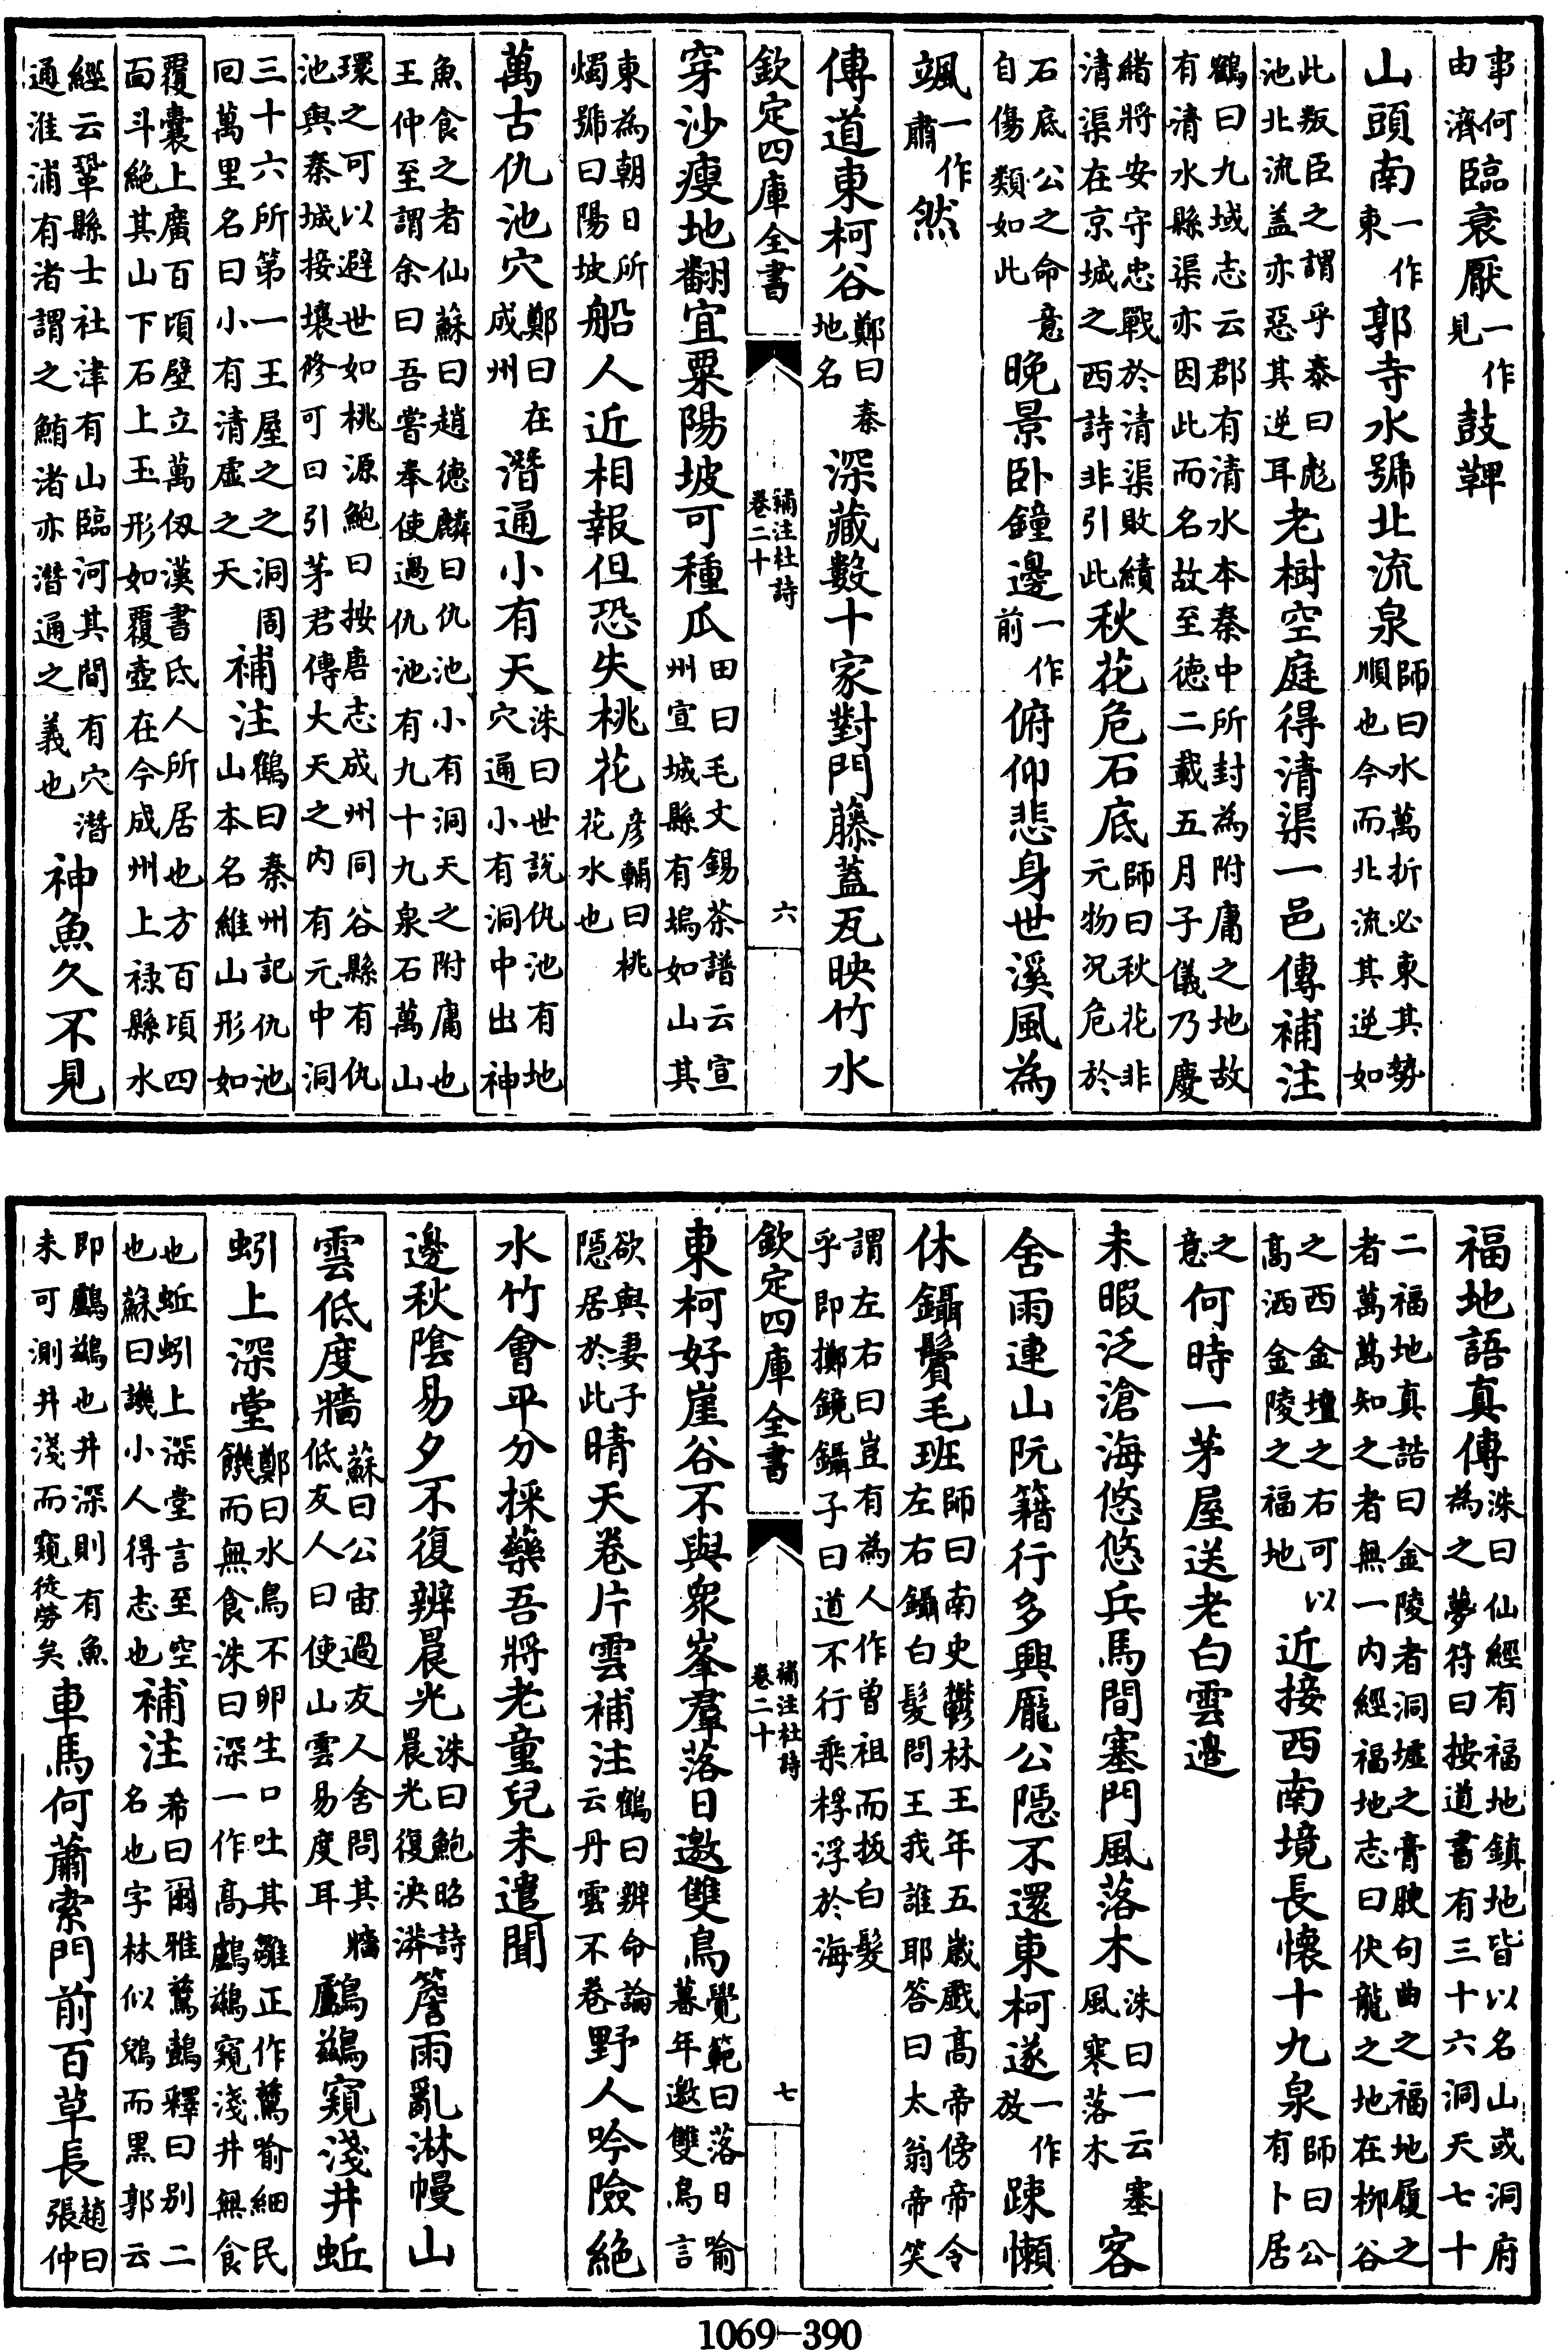 事何由濟臨衰厭一作見鼓鞞
山頭南一作東郭寺水號北流泉師曰水萬折必東其勢順也今而北流其逆如
此叛臣之謂乎泰曰彪池北流盖亦惡其逆耳老樹空庭得清渠一邑傳補注
鶴曰九域志云郡有清水本秦中所封為附庸之地故有清水縣渠亦因此而名故至德二載五月子儀乃慶
緒將安守忠戰於清渠敗績清渠在京城之西詩非引此秋花危石底師曰秋花非元物况危於
石底公之命意自傷類如此晚景卧鐘邊一作前俯仰悲身世溪風為
颯一作肅然
傳道東柯谷鄭曰秦地名深藏數十家對門藤蓋瓦映竹水
欽定四庫全書 補注杜詩卷二十 六
穿沙瘦地翻宜粟陽坡可種瓜田曰毛文錫茶譜云宣州宣城縣有塢如山其
東為朝日所燭號曰陽坡船人近相報但恐失桃花彦輔曰桃花水也
萬古仇池穴鄭曰在成州潛通小有天洙曰世説仇池有地穴通小有洞中出神
魚食之者仙蘇曰趙德麟曰仇池小有洞天之附庸也王仲至謂余曰吾嘗奉使過仇池有九十九泉石萬山
環之可以避世如桃源鮑曰按唐志成州同谷縣有仇池與秦城接壤修可曰引茅君傳大天之内有元中洞
三十六所第一王屋之之洞周回萬里名曰小有清虚之天補注鶴曰秦州記仇池山本名維山形如
覆囊上廣百頃壁立萬仭漢書氐人所居也方百頃四面斗絶其山下石上玉形如覆壺在今成州上禄縣水
經云鞏縣士社津有山臨河其間有穴潛通淮浦有渚謂之鮪渚亦潛通之義也神魚久不見
福地語真傳洙曰仙經有福地鎮地皆以名山或洞府為之夢符曰按道書有三十六洞天七十
二福地真誥曰金陵者洞墟之膏腴句曲之福地履之者萬萬知之者無一内經福地志曰伏龍之地在柳谷
之西金壇之右可以高洒金陵之福地近接西南境長懷十九泉師曰公有卜居
之意何時一茅屋送老白雲邉
未暇泛滄海悠悠兵馬間塞門風落木洙曰一云塞風寒落木客
舍雨連山阮籍行多興龎公隱不還東柯遂一作放疎懶
休鑷鬢毛班師曰南史鬱林王年五歲戲高帝傍帝令左右鑷白髮問王我誰耶答曰太翁帝笑
謂左右曰豈有為人作曽祖而拔白髮乎即擲鏡鑷子曰道不行乘桴浮於海
欽定四庫全書 補注杜詩卷二十 七
東柯好崖谷不與衆峯羣落日邀雙鳥覺範曰落日喻暮年邀雙鳥言
欲與妻子隱居於此晴天卷片雲補注鶴曰辨命論云丹雲不卷野人吟險絶
水竹會平分採藥吾將老童兒未遣聞
邊秋陰易夕不復辨晨光洙曰鮑昭詩晨光復泱漭簷雨亂淋幔山
雲低度牆蘇曰公宙過友人舍問其牆低友人曰使山雲易度耳鸕鷀窺淺井蚯
蚓上深堂鄭曰水鳥不卵生口吐其雛正作鷀喻細民饑而無食洙曰深一作高鸕鷀窺淺井無食
也蚯蚓上深堂言至空也蘇曰譏小人得志也補注希曰爾雅鶿鷧釋曰别二名也字林似鶂而黑郭云
即鸕鷀也井深則有魚未可測井淺而窺徒勞矣車馬何蕭索門前百草長趙曰張仲
1069-390